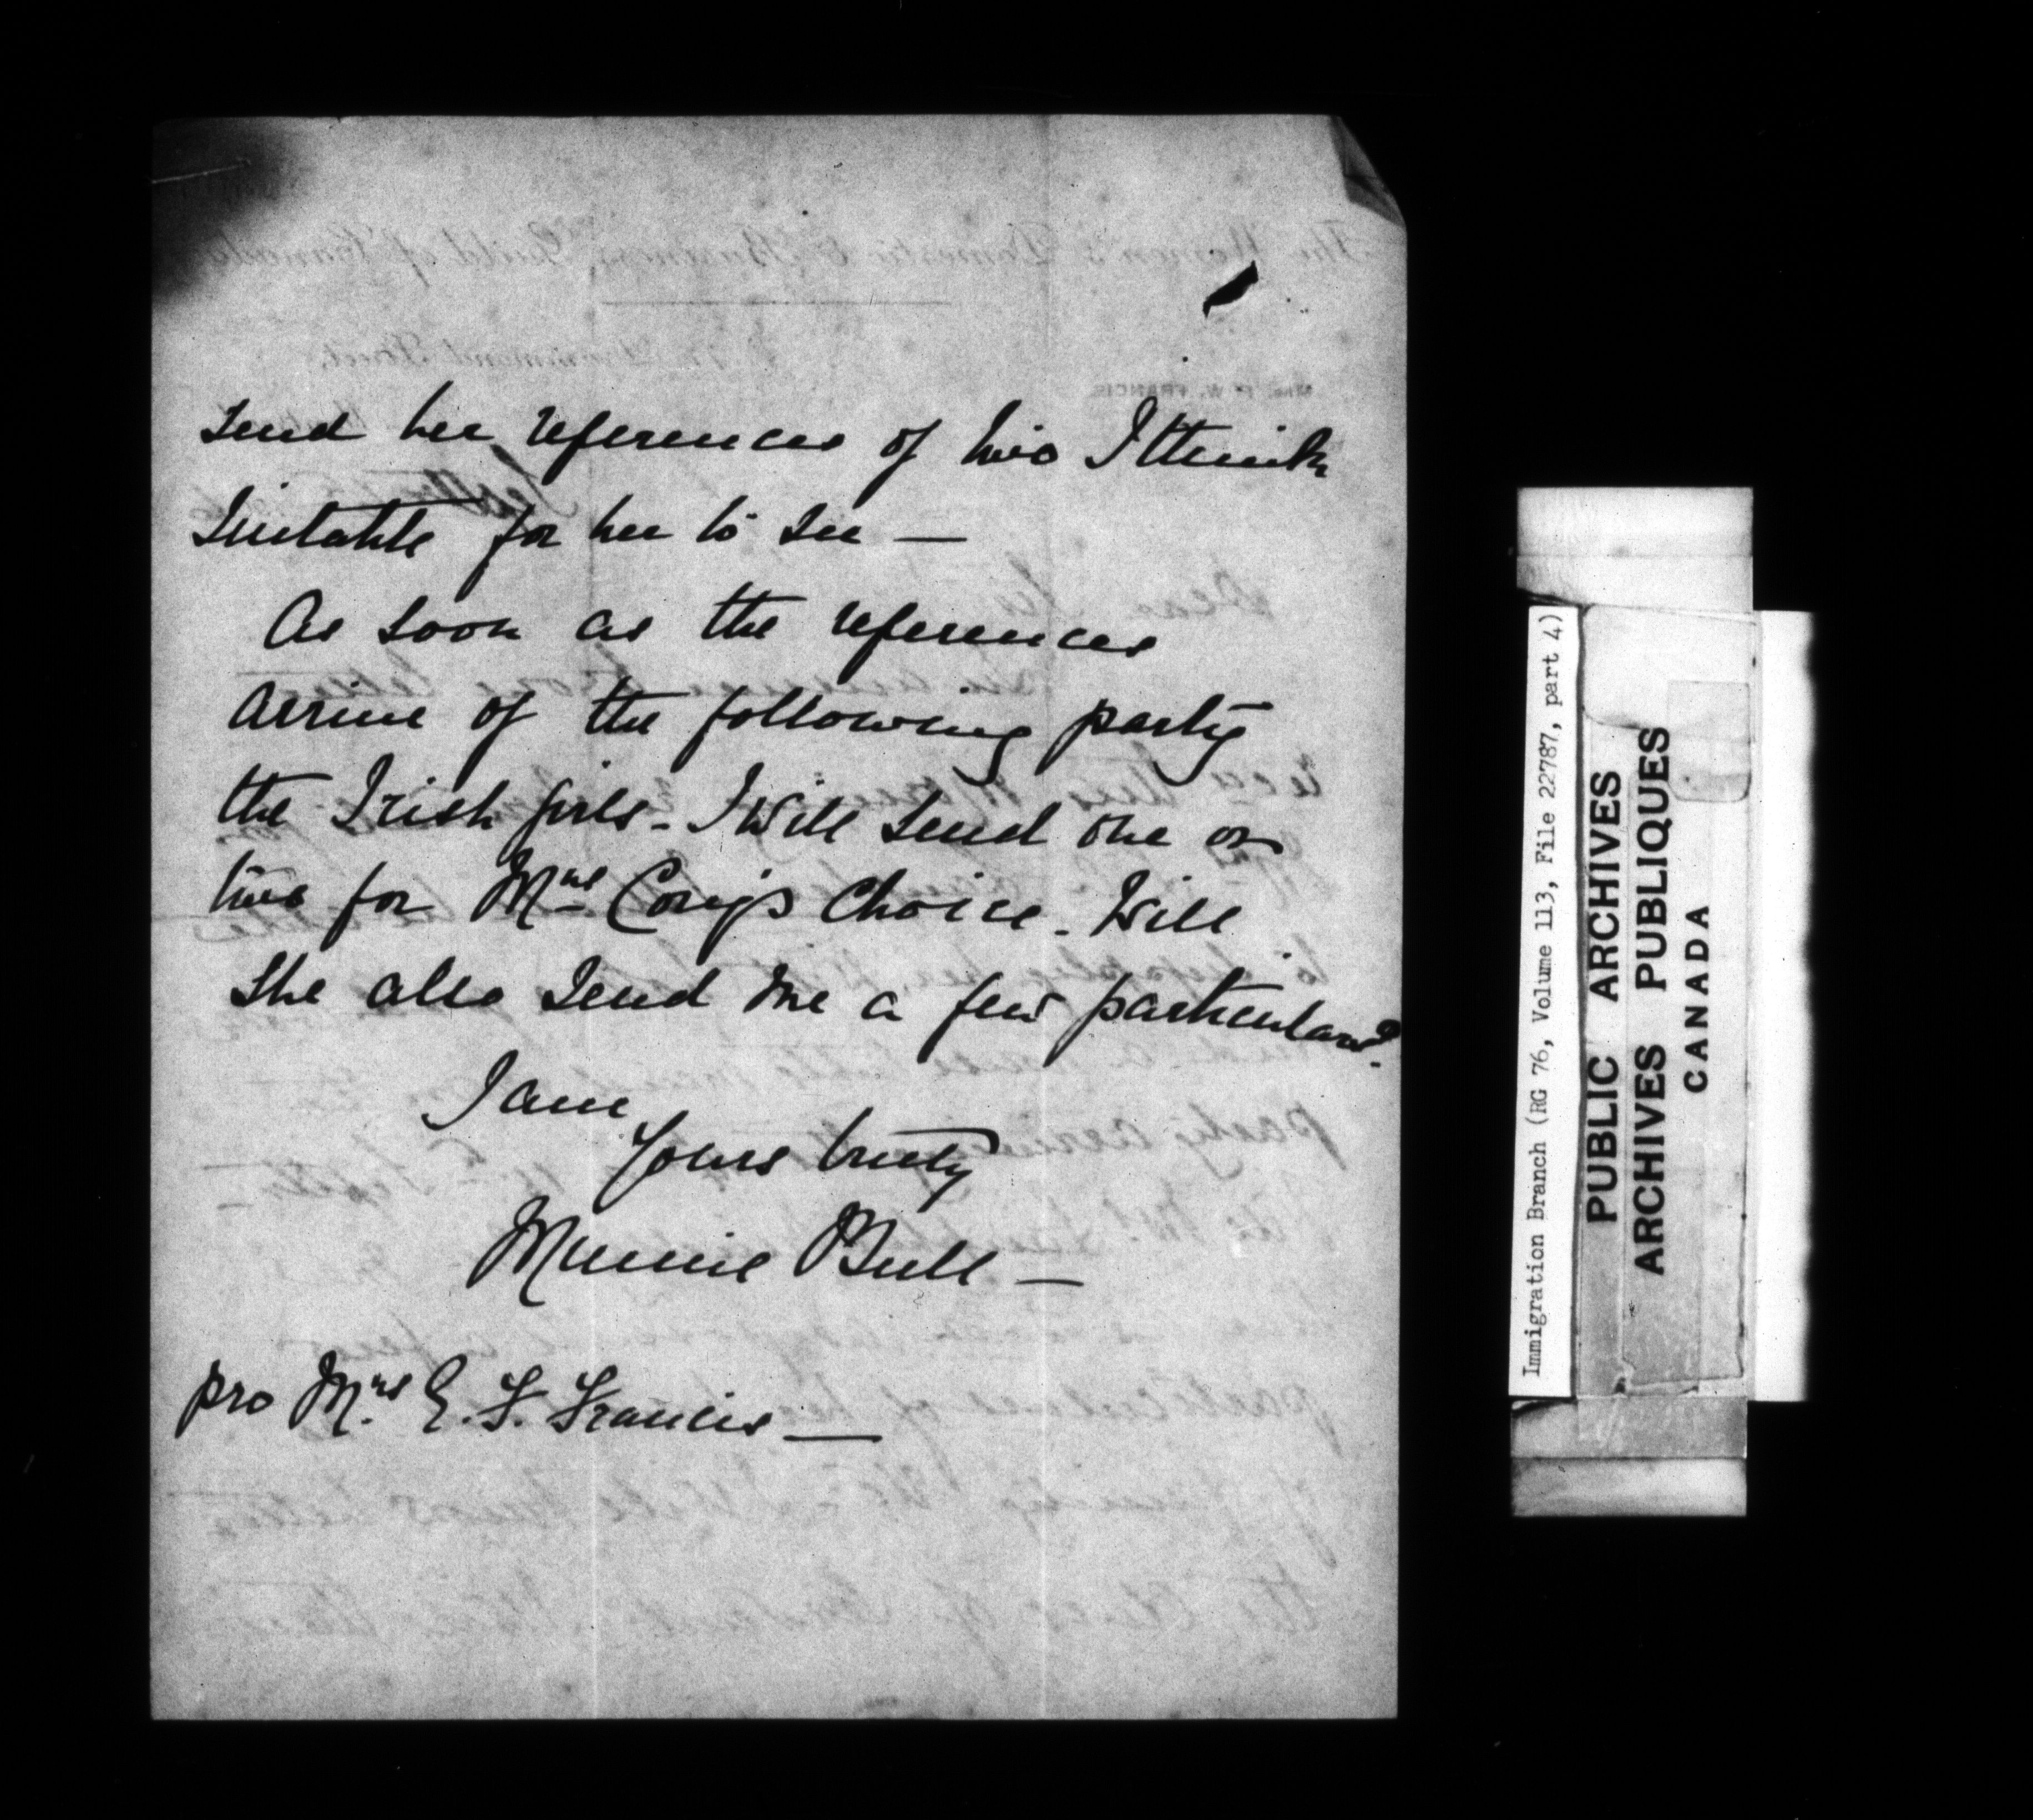 send her references of two I think
suitable for her to see —
As soon as the references
arrive of the following party
the Irish girls - I will send one or
two for Mrs Cory's choice. Will
she also send me a few particulars?
I am
Yours truly
Minnie Bull —
pro Mrs E. F. Francis —
Immigration Branch (RG 76, Volume 113, File 22787, part 4)
PUBLIC ARCHIVES
ARCHIVES PUBLIQUES
CANADA